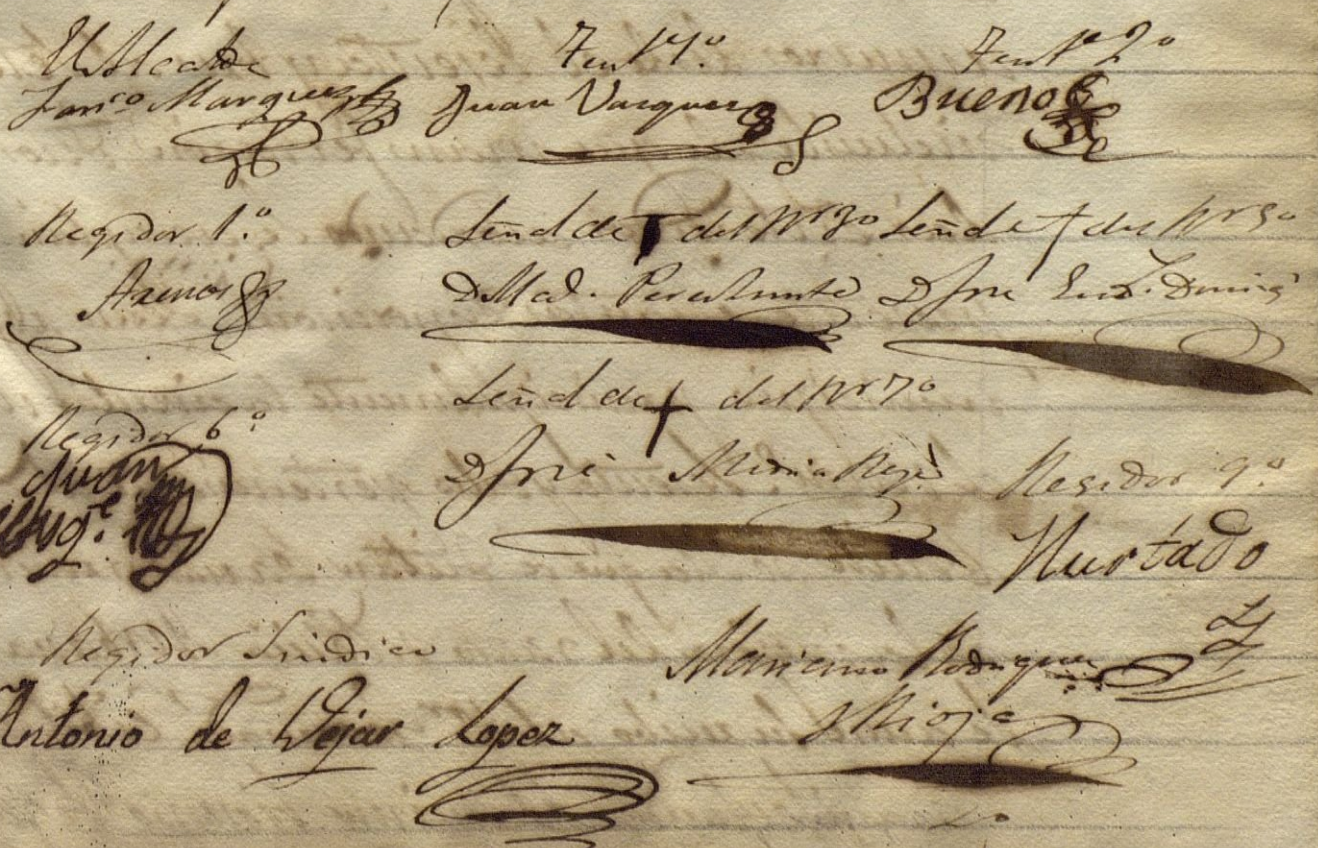 El Alcalde
Fran.co Marquez
Ten.te 1.º
Juan Vazquez
Ten.te 2º
Bueno
Regidor 1.º
Señal de † del Rr 3º
Señal de † del Rr 5º
D José
Regidor 6.º
Juan
Señal de † del Rr 7º
D José
Regidor 9.º
Hurtado
Regidor Sindico
Antonio de Vejar Lopez
Mariano Rodriguez
y Rioja